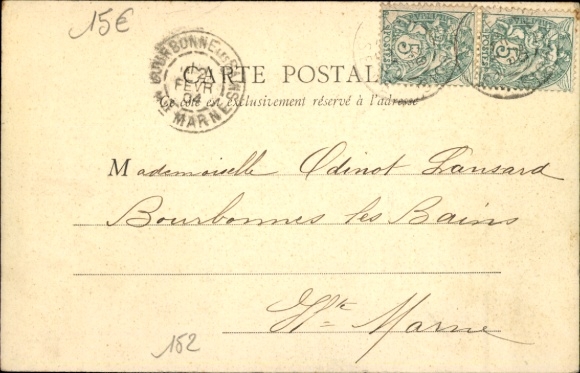 15€
BOURBONNE-LES-BAINS
FEVR
04
Hte MARNE
CARTE POSTALE
Ce côté est exclusivement réservé à l'adresse
5c 5c
Mademoiselle Odinot Lansard
Bourbonnes les Bains
Hte Marne
152